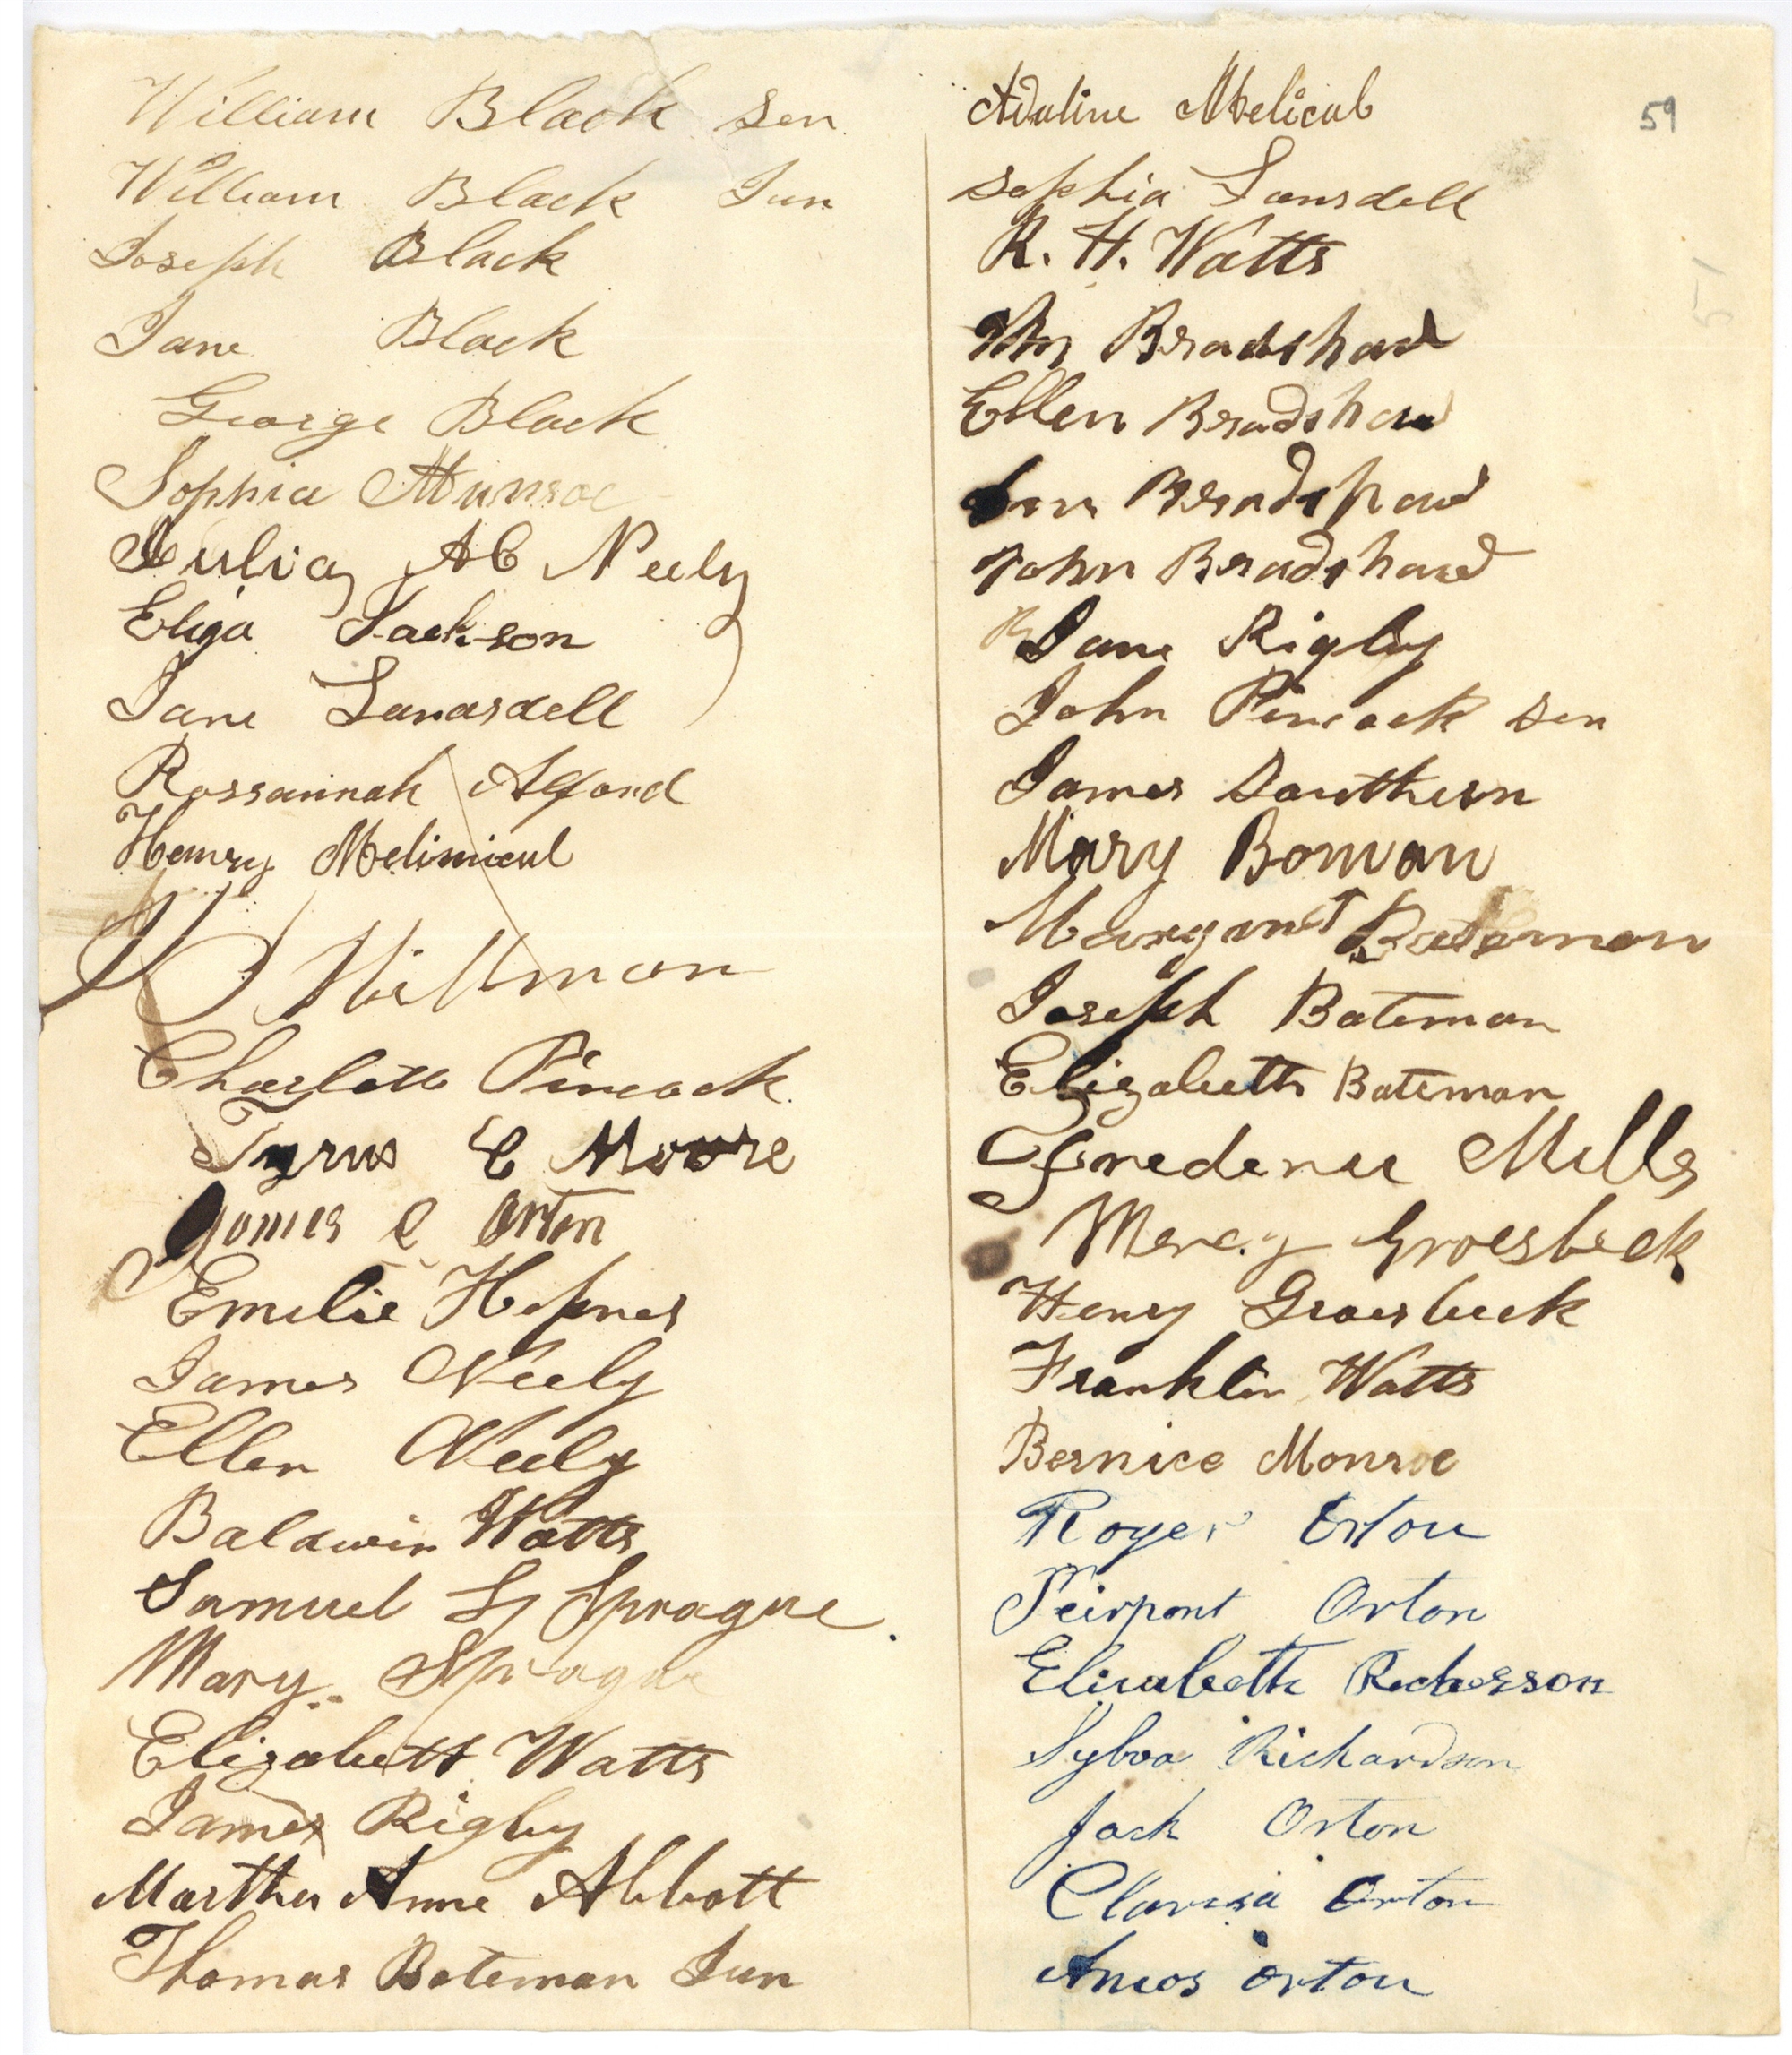 William Black Sen
William Black Jun
Joseph Black
Jane Black
George Black
Sophia Munroe
Julia AC Neely
Eliza Jackson
Jane Lanasdell
Rossannah Alford
Henry Melinicul
Hillman
Charlott Pincock
Tyrus C Moore
James C Orton
Emelie Hefner
James Neely
Ellen Neely
Baldwin Watts
Samuel Sprague
Mary Sprague
Elizabett Watts
James Rigby
Martha Anne Abbott
Thomas Bateman Jun
Adaline Melicub
59
Sophia Lansdell
R. H. Watts
51
Wm Bradshaw
Ellen Bradshaw
Bradshaw
John Bradshaw
Jane Rigby
John Pincock Sen
James Southern
Mary Boman
Margaret Bateman
Joseph Bateman
Elizabeth Bateman
Mills
Mercy Groesbeck
Henry Groesbeck
Franklin Watts
Bernice Monroe
Roger Orton
Peirpont Orton
Elisabeth
Sybva Richardson
Jack Orton
Clarisa Orton
Amos Orton